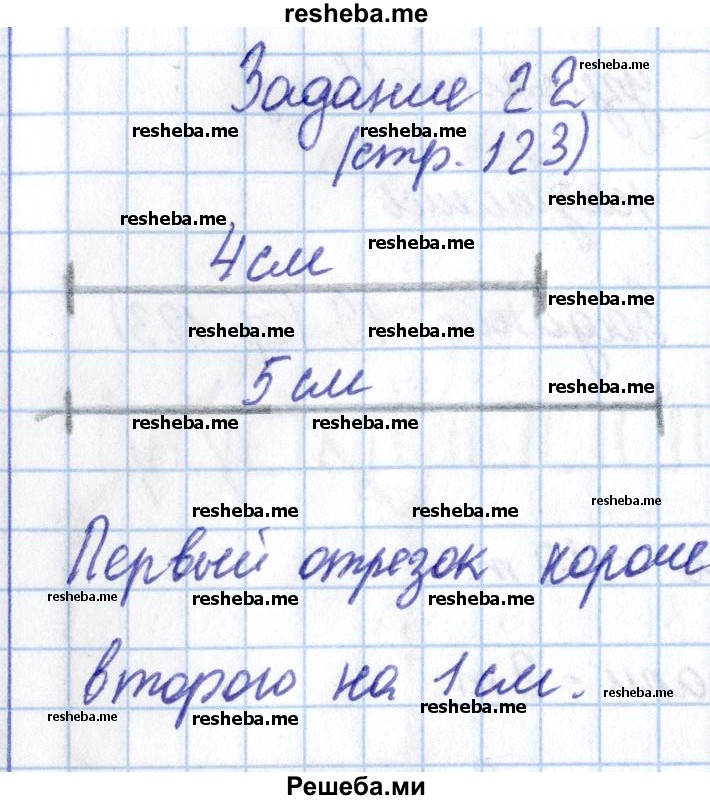 resheba.me
Задание 22
resheba.me
resheba.me resheba.me
(стр. 123)
resheba.me
resheba.me
4 см
resheba.me
resheba.me
resheba.me resheba.me
5 см
resheba.me
resheba.me resheba.me
resheba.me
resheba.me resheba.me
Первый отрезок короче
resheba.me resheba.me resheba.me
второго на 1 см.
resheba.me
resheba.me resheba.me resheba.me
Решеба.ми